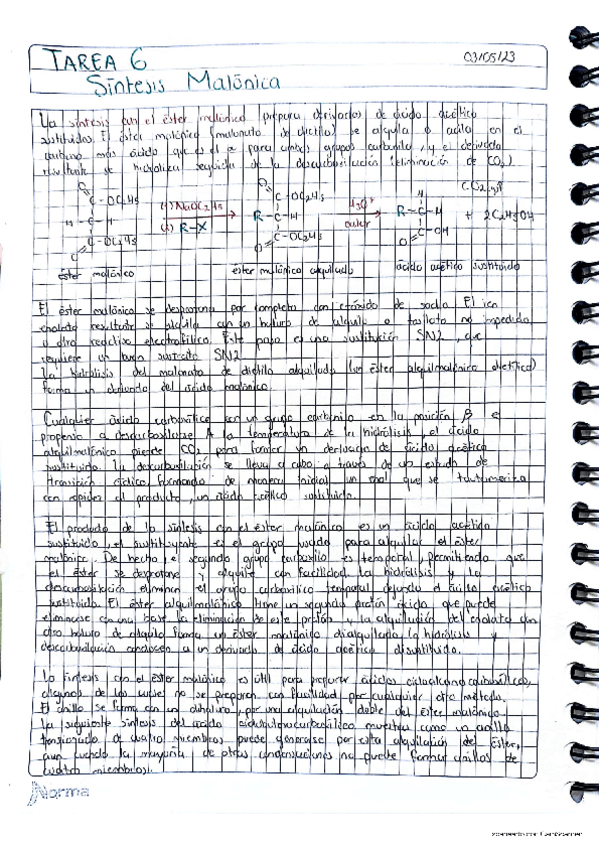 TAREA 6
03/05/23
Síntesis Malónica
La síntesis con el éster malónico prepara derivados de ácido acético
sustituidos. El éster malónico (malonato de dietilo) se alquila o acila en el
carbono más ácido que es el α para ambos grupos carbonilo, y el derivado
resultante se hidroliza seguido de la descarboxilación (eliminación de CO₂).
O C-OC₂H₅ 1) NaOC₂H₅ O C-OC₂H₅ H₃O⁺ H
H-C-H 2) R-X R-C-H calor R-C-H + 2C₂H₅OH
C-OC₂H₅ O C-OC₂H₅ O C-OH
O
éster malónico éster malónico alquilado ácido acético sustituido
El éster malónico se desprotona por completo con etóxido de sodio. El ion
enolato resultante se alquila con un haluro de alquilo o tosilato no impedido
u otro reactivo electrofílico. Este paso es una sustitución SN2, que
requiere un buen sustrato SN2
La hidrólisis del malonato de dietilo alquilado (un éster alquilmalónico dietílico)
forma un derivado del ácido malónico.
Cualquier ácido carboxílico con un grupo carbonilo en la posición β e
propenso a descarboxilarse. A la temperatura de la hidrólisis, el ácido
alquilmalónico pierde CO₂ para formar un derivado de ácido acético
sustituido. La descarboxilación se lleva a cabo a través de un estado de
transición cíclico, formando de manera inicial un enol que se tautomeriza
con rapidez al producto, un ácido acético sustituido.
El producto de la síntesis con el éster malónico es un ácido acético
sustituido, el sustituyente es el grupo usado para alquilar el éster
malónico. De hecho el segundo grupo carboxilo es temporal, permitiendo que
el éster se desprotone y alquile con facilidad. La hidrólisis y la
descarboxilación eliminan el grupo carboxílico temporal, dejando el ácido acético
sustituido. El éster alquilmalónico tiene un segundo protón ácido que puede
eliminarse con una base. La eliminación de este protón y la alquilación del enolato con
otro haluro de alquilo forma un éster malónico dialquilado. La hidrólisis y
descarboxilación conducen a un derivado de ácido acético disustituido.
La síntesis con el éster malónico es útil para preparar ácidos cicloalcanocarboxílicos,
algunos de los cuales no se preparan con facilidad por cualquier otro método.
El anillo se forma con un dihaluro, por una alquilación doble del éster malónico.
La siguiente síntesis del ácido ciclobutanocarboxílico muestra como un anillo
tensionado de cuatro miembros puede generarse por esta alquilación del éster,
aun cuando la mayoría de otras condensaciones no puede formar anillos de
cuatro miembros.
Norma
Scanned by CamScanner